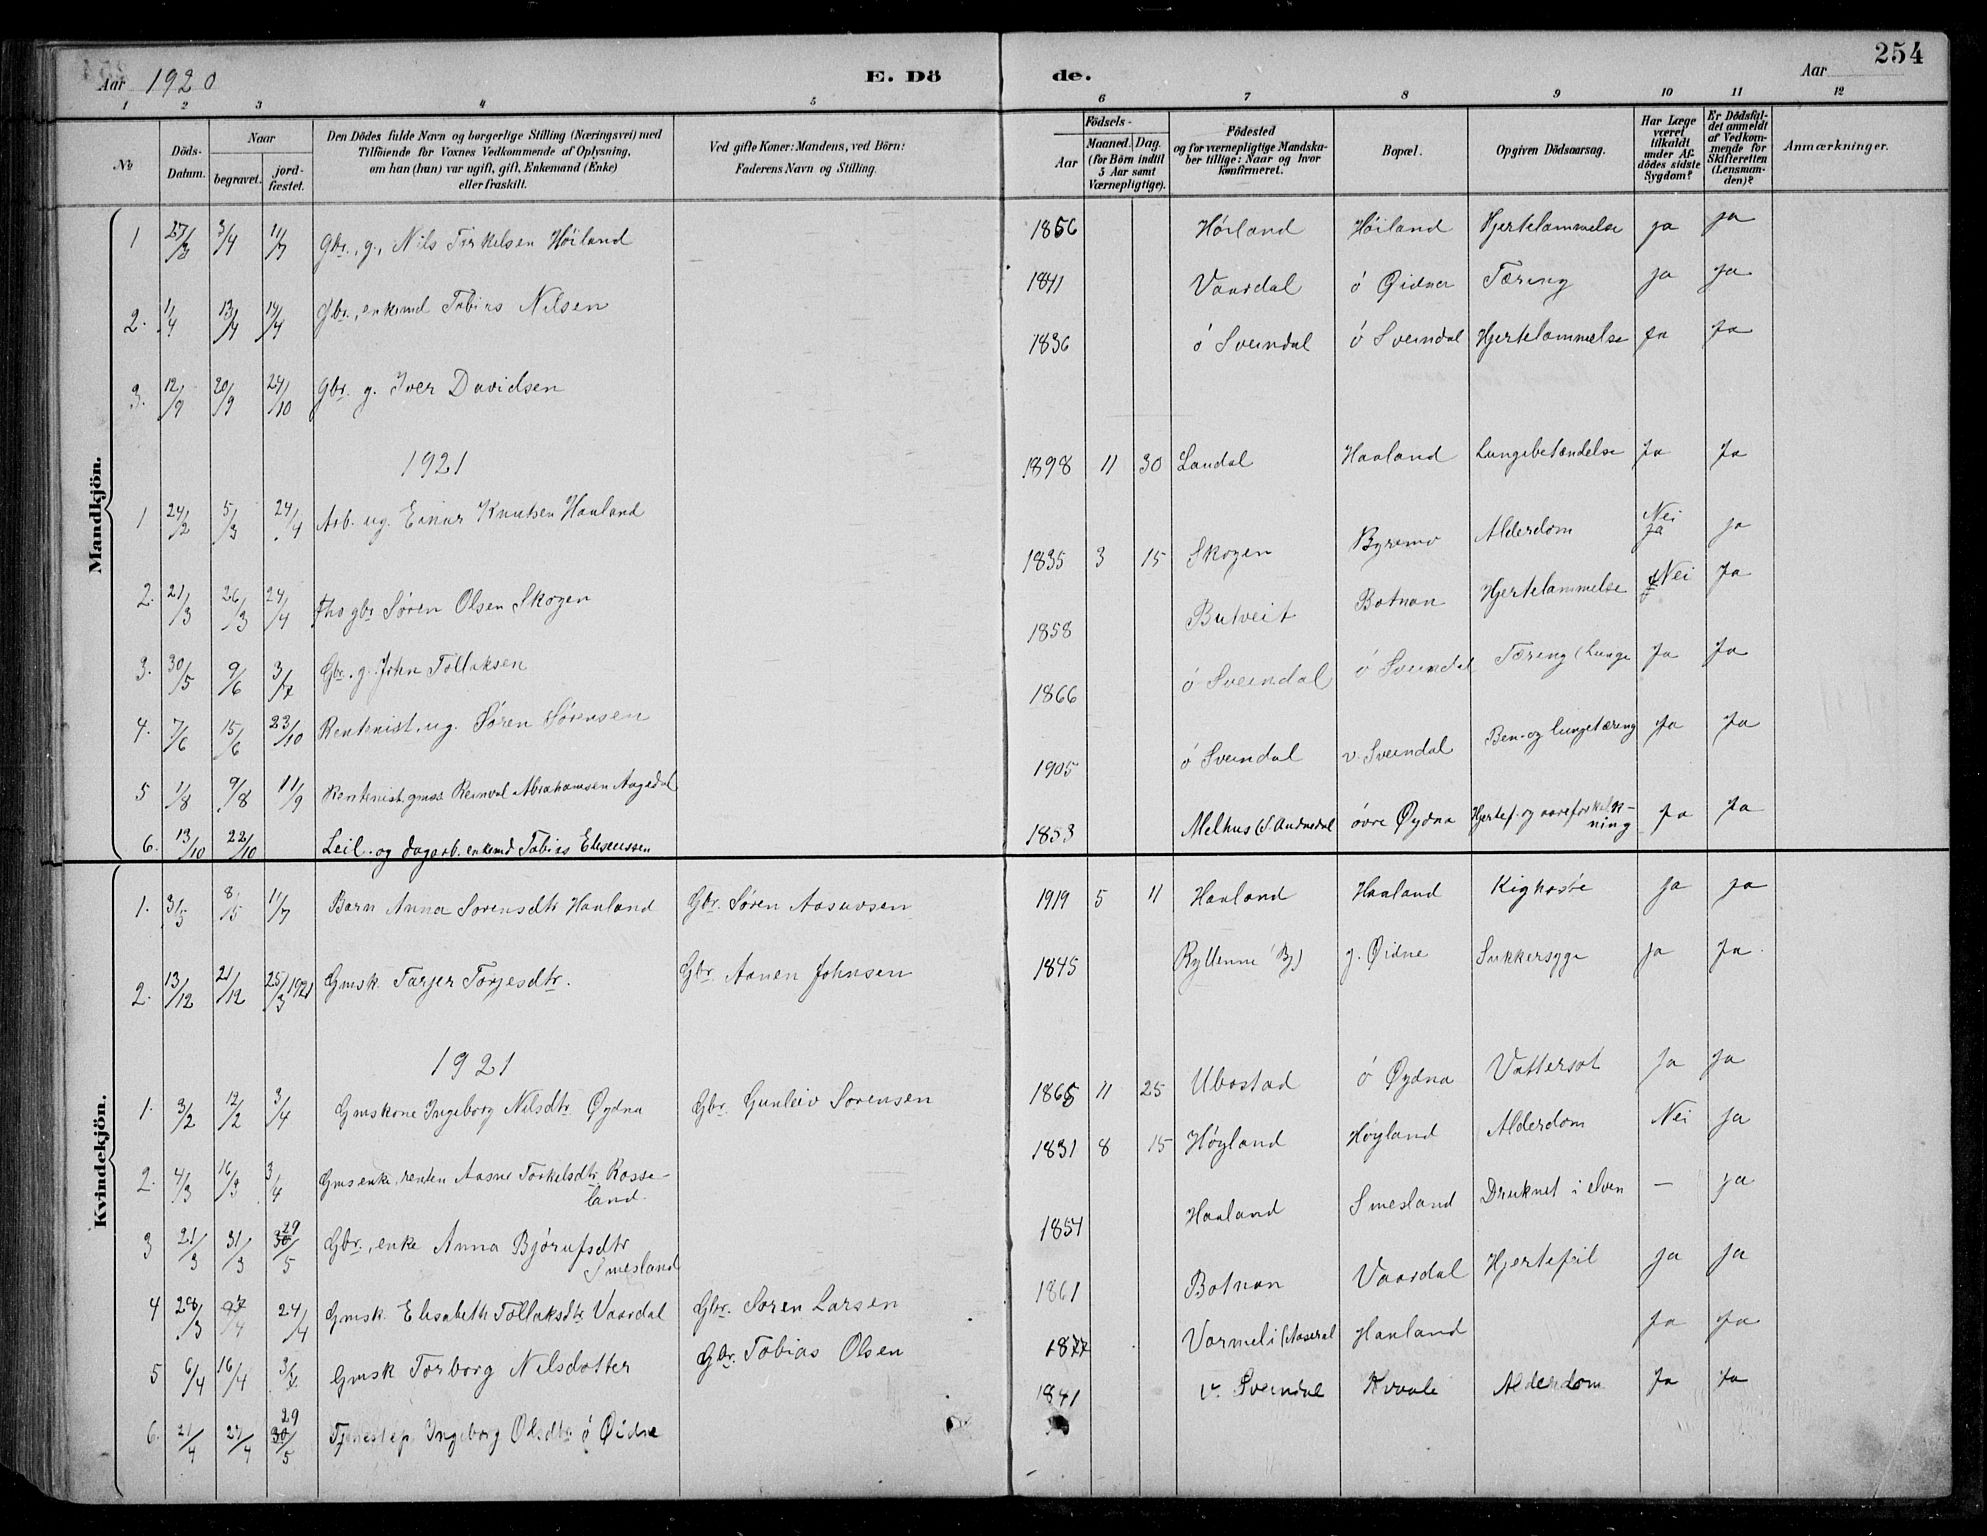 254
Aar 1920 E. Dö de. Aar
1 2 3 4 5 6 7 8 9 10 11 12
No
Döds-Datum.
Naar
begravet.
jord-fæstet.
Den Dödes fulde Navn og borgerlige Stilling (Næringsvei) med
Tilföiende for Voxnes Vedkommende af Oplysning,
om han (hun) var ugift, gift, Enkemand (Enke)
eller fraskilt.
Ved gifte Koner: Mandens, ved Börn:
Faderens Navn og Stilling.
Födsels-
Aar
Maaned. Dag.
(for Börn indtil
5 Aar samt
Værnepligtige).
Födested
og for værnepligtige Mandska-
ber tillige: Naar og hvor
konfirmeret.
Bopæl.
Opgiven Dödsaarsag.
Har Læge
været
tilkaldt
under Af-
dödes sidste
Sygdom?
Er Dödsfal-
det anmeldt
af Vedkom-
mende for
Skifteretten
(Lensman-
den)?
Anmærkninger.
Mandkjön.
1 27/3 3/4 11/7 Gbr., g., Nils Tirkelsen Höiland 1856 Höiland Höiland Hjertelammelse ja ja
2. 1/4 13/4 14/4 Gbr., enkemd Tobias Nilsen 1841 Vaardal ö Øidner Tæring ja ja
3. 12/9 20/9 24/10 Gbr. g. Iver Davidsen 1836 ö Sveindal ö Sveindal Hjertelammelse ja ja
1921
1 24/2 5/3 24/4 Arb. ug. Einar Knutsen Haaland 1898 11 30 Laudal Haaland Lungebetændelse Ja Ja
2. 21/3 26/3 24/4 gbr Søren Olsen Skogen 1835 3 15 Skogen Byremo Alderdom Nei ja
3. 30/5 9/6 3/7 Gbr. g. John Tollaksen 1858 Butveit Botnan Hjertelammelse Nei Ja
4. 7/6 15/6 23/10 Rentenist, ug. Søren Sørensen 1866 ö Sveindal ö Sveindal Tæring (Lunge Ja Ja
5 1/8 9/8 11/9 Rentenist, Reinval Abrahamsen Aagedal 1905 ö Sveindal v. Sveindal Ben- og lungetæring Ja Ja
6. 13/10 22/10 Leil. og dagarb. enkemd Tobias Eliseussen 1853 Melhus (S. Audnedal övre Øydna Hjertef. og aareforkalk-
ning Ja Ja
Kvindekjön.
1. 3/5 8/5 11/7 Barn Anna Sørensdtr Haaland Gbr. Søren Aasuvsen 1919 5 11 Haaland Haaland Kighoste Ja ja
2. 13/12 21/12 25/3 1921 Gmsk. Tarjer Torjesdtr. Gbr. Aanen Johnsen 1845 Ryllenne (Bj) g. Øidne Sukkersyge Ja Ja
1921
1. 3/2 12/2 3/4 Gmskone Ingeborg Nilsdtr. Øydna Gbr. Gunleiv Sørensen 1865 11 25 Ubostad ö Øydna Vattersot Ja Ja
2. 4/3 16/3 3/4 Gmsenke, renten Aasne Torkelsdtr. Rosse-
land. 1831 8 15 Høyland Høyland Alderdom Nei Ja
3 21/3 31/3 29 30/5 Gbr., enke Anna Bjørufsdtr
Smesland 1854 Haaland Smesland Druknet i elven — ja
4 28/3 4 24/4 Gmsk. Elisabeth Tollaksdtr. Vaardal Gbr. Søren Larsen 1861 Botnan Vaardal Hjertefeil ja Ja
5 6/4 16/4 Gmsk Torborg Nilsdotter Gbr. Tobias Olsen 1877 Vormeli (Aaseral Haaland Ja Ja
6. 21/4 27/4 29 30/5 Tjenestep. Ingeborg Olsdtr ö Øidne 1841 v. Sveindal Kvaale Alderdom Ja Ja